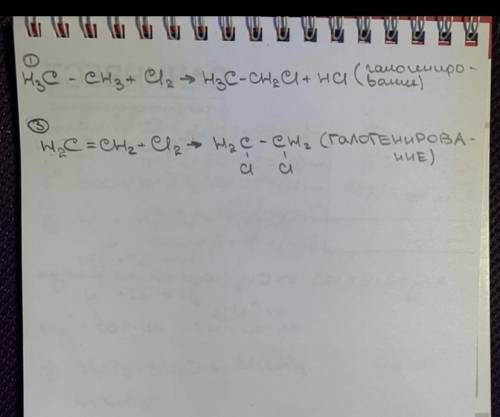 ①
H₃C - CH₃ + Cl₂ → H₃C-CH₂Cl + HCl (галогениро-
вание)
③
H₂C=CH₂ + Cl₂ → H₂C - CH₂ (ГАЛОГЕНИРОВА-
НИЕ)
Cl Cl